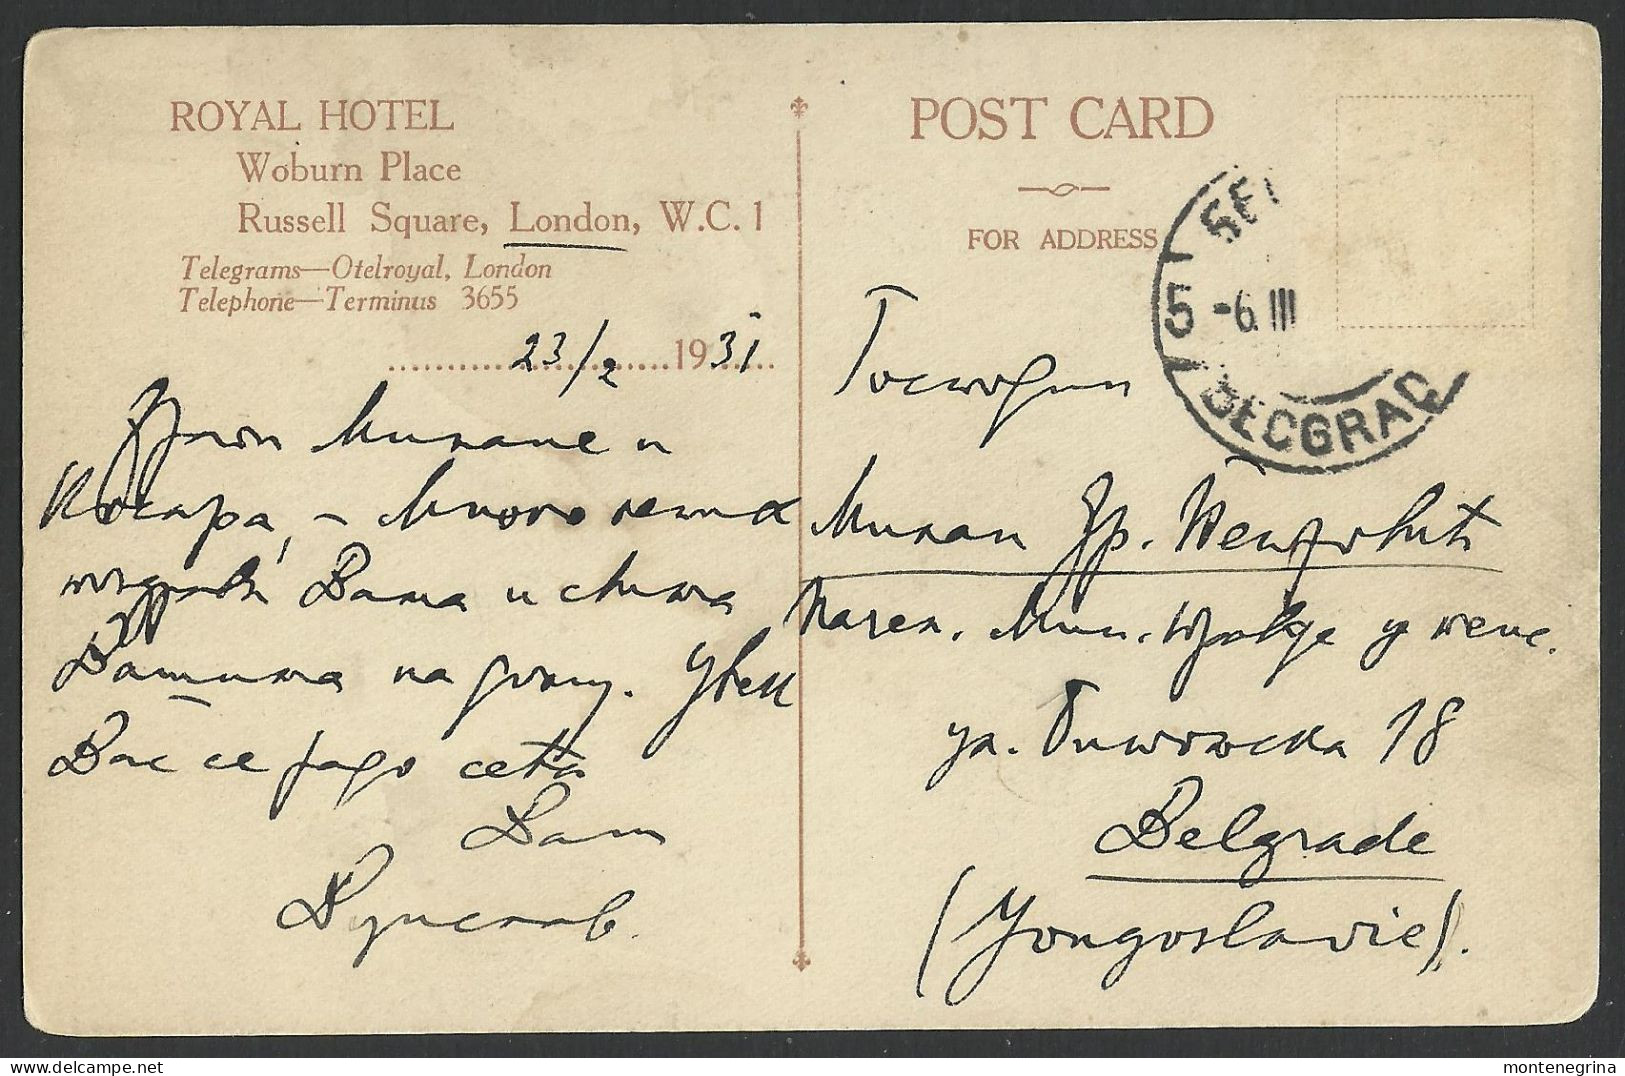 ROYAL HOTEL
Woburn Place
Russell Square, London, W.C.1
Telegrams—Otelroyal, London
Telephone—Terminus 3655
23/2 1931
Драги Милане и
Косара, – Много
Вама и свима
Вашима на дому. Увек
Вас се радо сећа
Ваш
POST CARD
FOR ADDRESS
5 -6 III
BEOGRAD
Господин
Милан Ђр.
Начел. Мин. Војске у пенс.
ул. 18
Belgrade
(Yougoslavie).
montenegrina